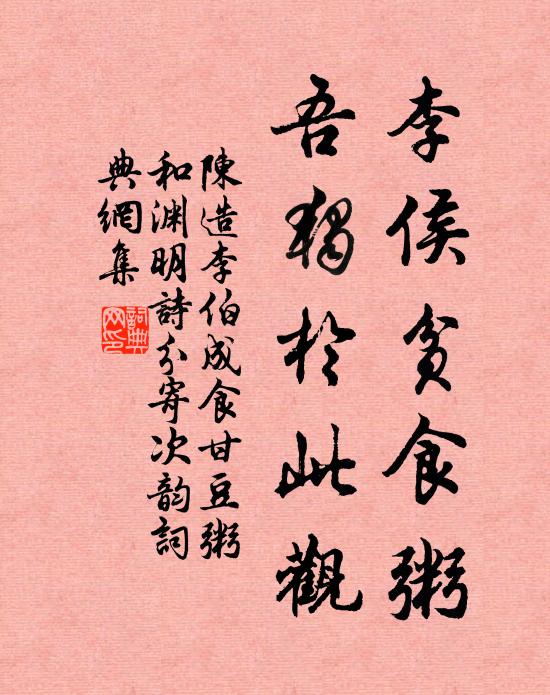 李侯貧食粥
吾獨於此觀
陳造李伯成食甘豆粥
和淵明詩分寄次韵詞
典網集
詞典
网印